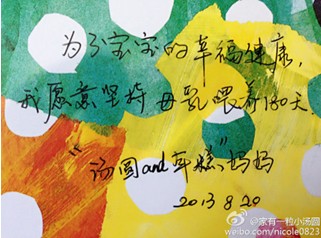 为了宝宝的幸福健康，
我愿意坚持母乳喂养180天.
"汤圆and年糕"妈妈
2013 8 20
@家有一粒小汤圆
weibo.com/nicole0823